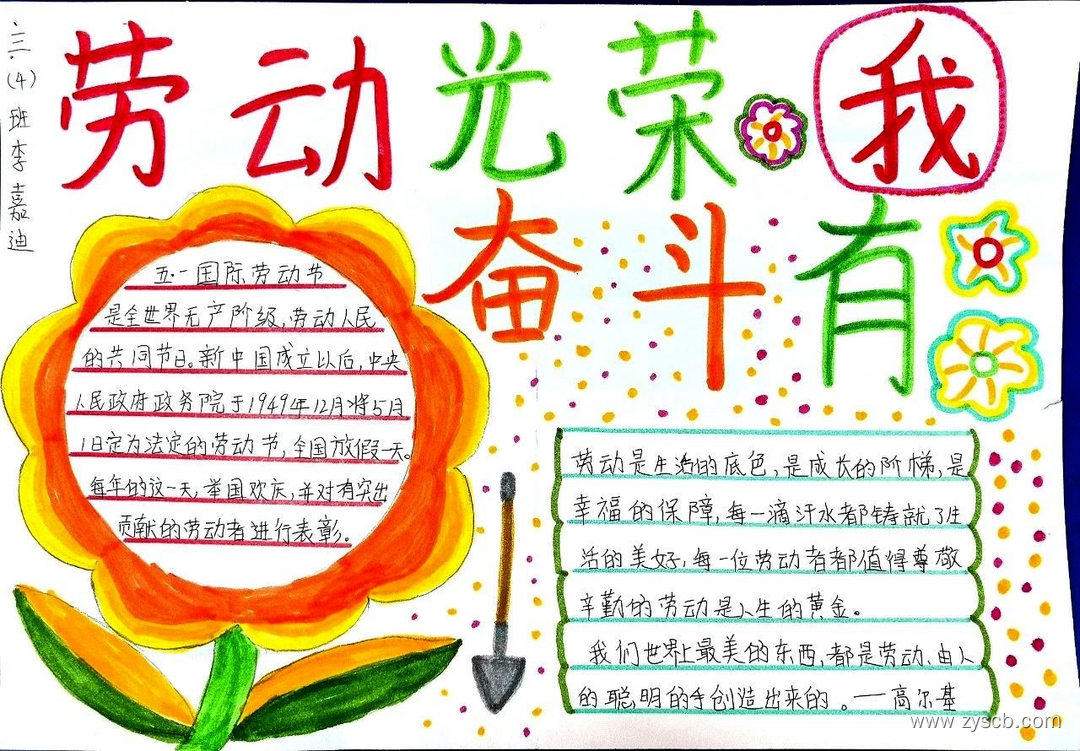 三.(4)班李嘉迪
劳动光荣我
奋斗有
五·一国际劳动节
是全世界无产阶级,劳动人民
的共同节日。新中国成立以后,中央
人民政府政务院于1949年12月将5月
1日定为法定的劳动节,全国放假一天。
每年的这一天,举国欢庆,并对有突出
贡献的劳动者进行表彰。
劳动是生活的底色,是成长的阶梯,是
幸福的保障,每一滴汗水都铸就了生
活的美好,每一位劳动者都值得尊敬
辛勤的劳动是人生的黄金。
我们世界上最美的东西,都是劳动、由人
的聪明的手创造出来的。——高尔基
www.zyscb.com